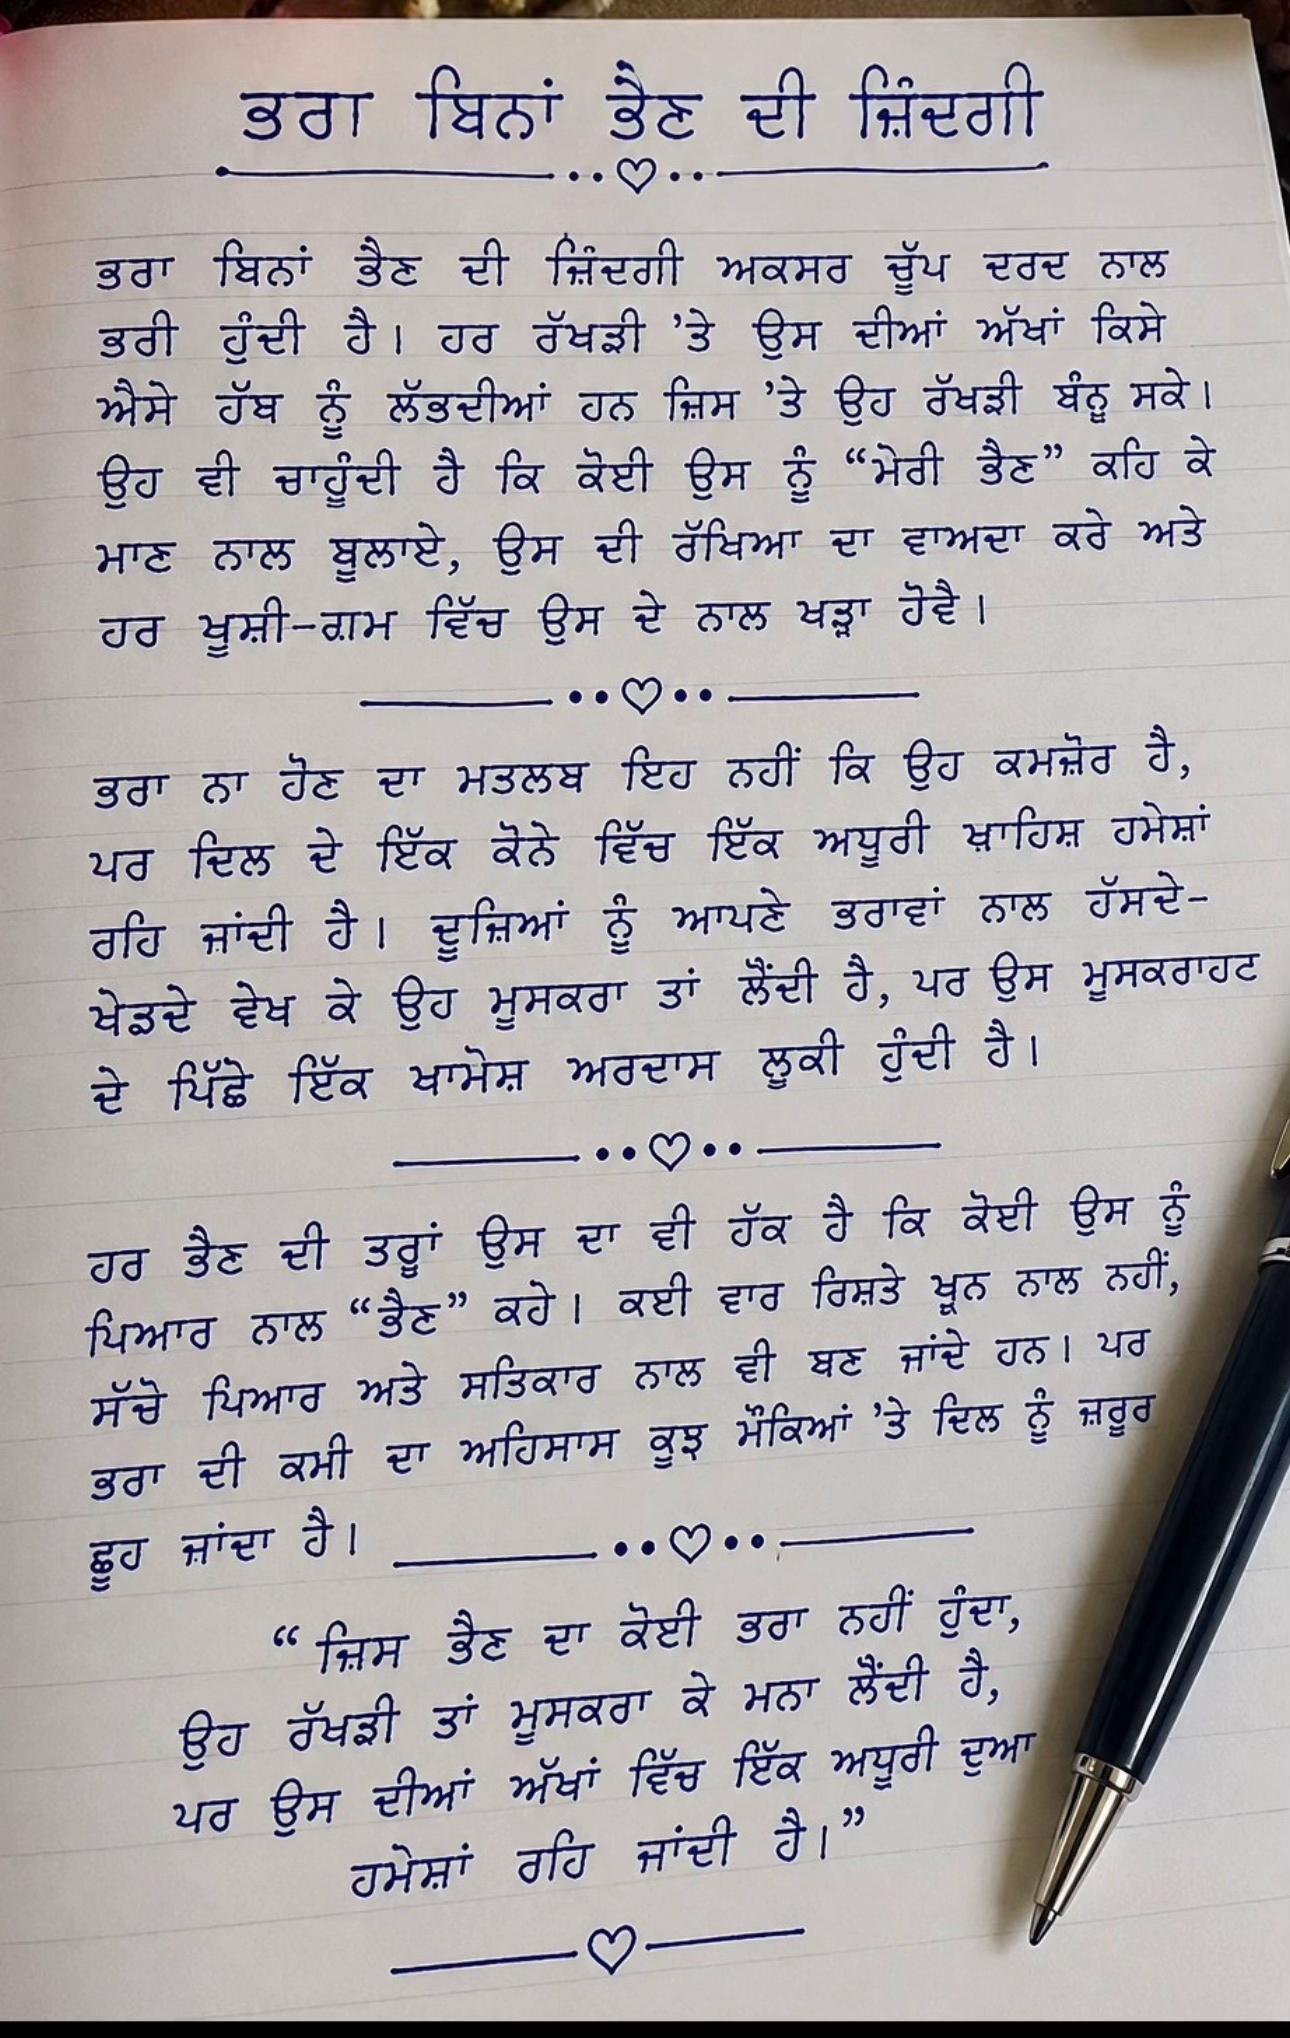 ਭਰਾ ਬਿਨਾਂ ਭੈਣ ਦੀ ਜ਼ਿੰਦਗੀ
ਭਰਾ ਬਿਨਾਂ ਭੈਣ ਦੀ ਜ਼ਿੰਦਗੀ ਅਕਸਰ ਚੂੱਪ ਦਰਦ ਨਾਲ
ਭਰੀ ਹੁੰਦੀ ਹੈ। ਹਰ ਰੱਖੜੀ 'ਤੇ ਉਸ ਦੀਆਂ ਅੱਖਾਂ ਕਿਸੇ
ਐਸੇ ਹੱਥ ਨੂੰ ਲੱਭਦੀਆਂ ਹਨ ਜ਼ਿਸ 'ਤੇ ਉਹ ਰੱਖੜੀ ਬੰਨ੍ਹ ਸਕੇ।
ਉਹ ਵੀ ਚਾਹੂੰਦੀ ਹੈ ਕਿ ਕੋਈ ਉਸ ਨੂੰ “ਮੇਰੀ ਭੈਣ” ਕਹਿ ਕੇ
ਮਾਣ ਨਾਲ ਬੂਲਾਏ, ਉਸ ਦੀ ਰੱਖਿਆ ਦਾ ਵਾਅਦਾ ਕਰੇ ਅਤੇ
ਹਰ ਖੂਸ਼ੀ-ਗ਼ਮ ਵਿੱਚ ਉਸ ਦੇ ਨਾਲ ਖੜ੍ਹਾ ਹੋਵੈ।
ਭਰਾ ਨਾ ਹੋਣ ਦਾ ਮਤਲਬ ਇਹ ਨਹੀਂ ਕਿ ਉਹ ਕਮਜ਼ੋਰ ਹੈ,
ਪਰ ਦਿਲ ਦੇ ਇੱਕ ਕੋਨੇ ਵਿੱਚ ਇੱਕ ਅਧੂਰੀ ਖ਼ਾਹਿਸ਼ ਹਮੇਸ਼ਾਂ
ਰਹਿ ਜ਼ਾਂਦੀ ਹੈ। ਦੂਜ਼ਿਆਂ ਨੂੰ ਆਪਣੇ ਭਰਾਵਾਂ ਨਾਲ ਹੱਸਦੇ-
ਖੇਡਦੇ ਵੇਖ ਕੇ ਉਹ ਮੂਸਕਰਾ ਤਾਂ ਲੈਂਦੀ ਹੈ, ਪਰ ਉਸ ਮੂਸਕਰਾਹਟ
ਦੇ ਪਿੱਛੇ ਇੱਕ ਖਾਮੋਸ਼ ਅਰਦਾਸ ਲੂਕੀ ਹੁੰਦੀ ਹੈ।
ਹਰ ਭੈਣ ਦੀ ਤਰ੍ਹਾਂ ਉਸ ਦਾ ਵੀ ਹੱਕ ਹੈ ਕਿ ਕੋਈ ਉਸ ਨੂੰ
ਪਿਆਰ ਨਾਲ “ਭੈਣ” ਕਹੇ। ਕਈ ਵਾਰ ਰਿਸ਼ਤੇ ਖ਼ੂਨ ਨਾਲ ਨਹੀਂ,
ਸੱਚੇ ਪਿਆਰ ਅਤੇ ਸਤਿਕਾਰ ਨਾਲ ਵੀ ਬਣ ਜਾਂਦੇ ਹਨ। ਪਰ
ਭਰਾ ਦੀ ਕਮੀ ਦਾ ਅਹਿਸਾਸ ਕੂਝ ਮੌਕਿਆਂ 'ਤੇ ਦਿਲ ਨੂੰ ਜ਼ਰੂਰ
ਛੂਹ ਜ਼ਾਂਦਾ ਹੈ।
“ਜ਼ਿਸ ਭੈਣ ਦਾ ਕੋਈ ਭਰਾ ਨਹੀਂ ਹੁੰਦਾ,
ਉਹ ਰੱਖੜੀ ਤਾਂ ਮੂਸਕਰਾ ਕੇ ਮਨਾ ਲੈਂਦੀ ਹੈ,
ਪਰ ਉਸ ਦੀਆਂ ਅੱਖਾਂ ਵਿੱਚ ਇੱਕ ਅਧੂਰੀ ਦੁਆ
ਹਮੇਸ਼ਾਂ ਰਹਿ ਜਾਂਦੀ ਹੈ।”